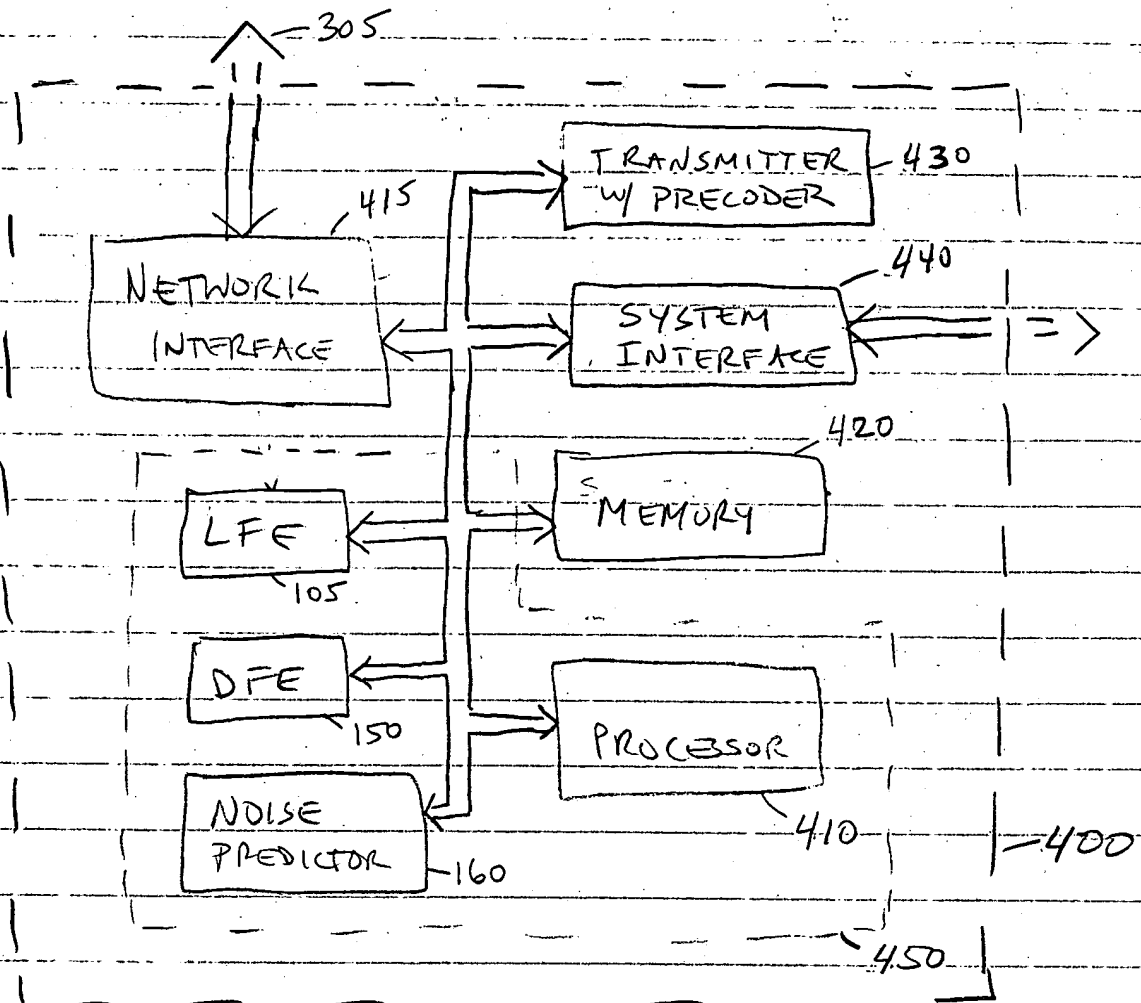 305
TRANSMITTER
W/ PRECODER
430
415
NETWORK
INTERFACE
440
SYSTEM
INTERFACE
420
MEMORY
LFE
105
DFE
150
PROCESSOR
410
400
NOISE
PREDICTOR
160
450